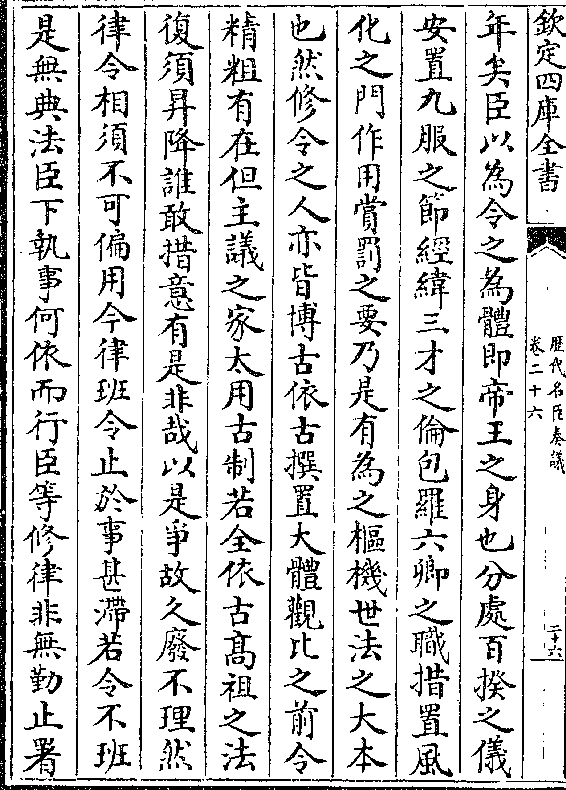 欽定四庫全書
歷代名臣奏議
卷二十六
二十六
年矣臣以為令之為體即帝王之身也分處百揆之儀
安置九服之節經緯三才之倫包羅六卿之職措置風
化之門作用賞罰之要乃是有為之樞機世法之大本
也然修令之人亦皆博古依古撰置大體觀比之前令
精粗有在但主議之家太用古制若全依古髙祖之法
復須昇降誰敢措意有是非哉以是爭故久廢不理然
律令相須不可偏用今律班令止於事甚滯若令不班
是無典法臣下執事何依而行臣等修律非無勤止署